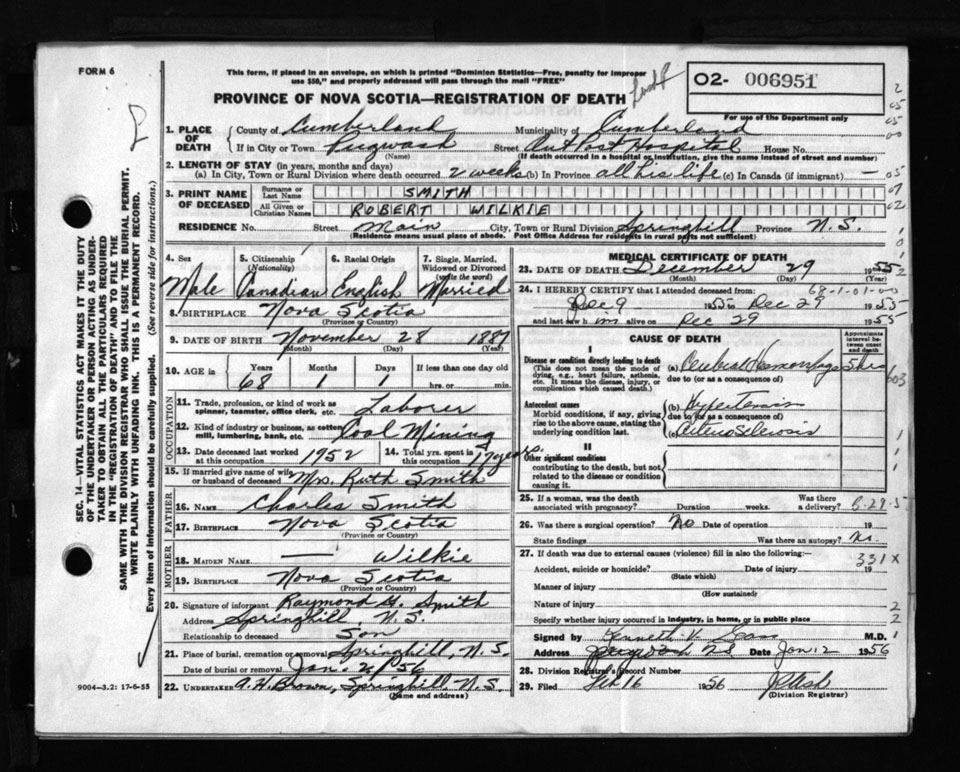 FORM 6
This form, if placed in an envelope, on which is printed "Dominion Statistics—Free, penalty for improper
use $50," and properly addressed will pass through the mail "FREE"
PROVINCE OF NOVA SCOTIA—REGISTRATION OF DEATH
O2- 006951
For use of the Department only
1. PLACE OF DEATH
County of Cumberland Municipality of Cumberland
If in City or Town Pugwash Street OutPost Hospital House No.
(Name) (If death occurred in a hospital or institution, give the name instead of street and number)
2. LENGTH OF STAY (in years, months and days)
(a) In City, Town or Rural Division where death occurred 2 weeks (b) In Province all his life (c) In Canada (if immigrant) —
3. PRINT NAME OF DECEASED
Surname or Last Name SMITH
All Given or Christian Names ROBERT WILKIE
RESIDENCE No. Street Main City, Town or Rural Division Springhill Province N.S.
(Residence means usual place of abode. Post Office Address for residents in rural parts not sufficient)
4. Sex Male
5. Citizenship (Nationality) Canadian
6. Racial Origin English
7. Single, Married, Widowed or Divorced (write the word) Married
8. BIRTHPLACE Nova Scotia
(Province or Country)
9. DATE OF BIRTH November 28 1887
(Month) (Day) (Year)
10. AGE in Years Months Days If less than one day
68 1 1 hrs. or min.
OCCUPATION
11. Trade, profession, or kind of work as spinner, teamster, office clerk, etc. Laborer
12. Kind of industry or business, as cotton mill, lumbering, bank, etc. Coal Mining
13. Date deceased last worked at this occupation 1952
14. Total yrs. spent in this occupation years.
15. If married give name of wife or husband of deceased Mrs. Ruth Smith
FATHER
16. NAME Charles Smith
17. BIRTHPLACE Nova Scotia
(Province or Country)
MOTHER
18. MAIDEN NAME — Wilkie
19. BIRTHPLACE Nova Scotia
(Province or Country)
20. Signature of informant Raymond H. Smith
Address Springhill, N.S.
Relationship to deceased Son
21. Place of burial, cremation or removal Springhill, N.S.
Date of burial or removal Jan. 2/56
22. UNDERTAKER A.H. Brown, Springhill, N.S.
(Name and address)
MEDICAL CERTIFICATE OF DEATH
23. DATE OF DEATH December 29 1955
(Month) (Day) (Year)
24. I HEREBY CERTIFY that I attended deceased from 68-1-01-00
Dec 9 1955 Dec 29 1955
and last saw h im alive on Dec 29 1955
CAUSE OF DEATH
Approximate interval between onset and death
I
Disease or condition directly leading to death
(This does not mean the mode of dying, e.g., heart failure, asthenia, etc. It means the disease, injury, or complication which caused death.)
(a) Cerebral Hemorrhage
due to (or as a consequence of)
Antecedent causes
Morbid conditions, if any, giving rise to the above cause, stating the underlying condition last.
(b) Hypertension
due to (or as a consequence of)
(c) Arteriosclerosis
II
Other significant conditions
contributing to the death, but not related to the disease or condition causing it.
25. If a woman, was the death associated with pregnancy? Duration weeks. Was there a delivery?
26. Was there a surgical operation? No Date of operation 19
State findings Was there an autopsy? No.
27. If death was due to external causes (violence) fill in also the following:—
331X
Accident, suicide or homicide? Date of injury 19
(State which)
Manner of injury
(How sustained)
Nature of injury
Specify whether injury occurred in industry, in home, or in public place
Signed by Kenneth V. M.D.
Address N.S Date Jan. 2 1956
28. Division Registrar's Record Number
29. Filed Feb 16 1956
(Division Registrar)
9004-3.2: 17-6-53
SEC. 14—VITAL STATISTICS ACT MAKES IT THE DUTY
OF THE UNDERTAKER OR PERSON ACTING AS UNDER-
TAKER TO OBTAIN ALL THE PARTICULARS REQUIRED
IN THE "REGISTRATION OF DEATH" AND TO FILE THE
SAME WITH THE DIVISION REGISTRAR WHO SHALL ISSUE THE BURIAL PERMIT.
WRITE PLAINLY WITH UNFADING INK. THIS IS A PERMANENT RECORD.
Every item of information should be carefully supplied. (See reverse side for instructions.)